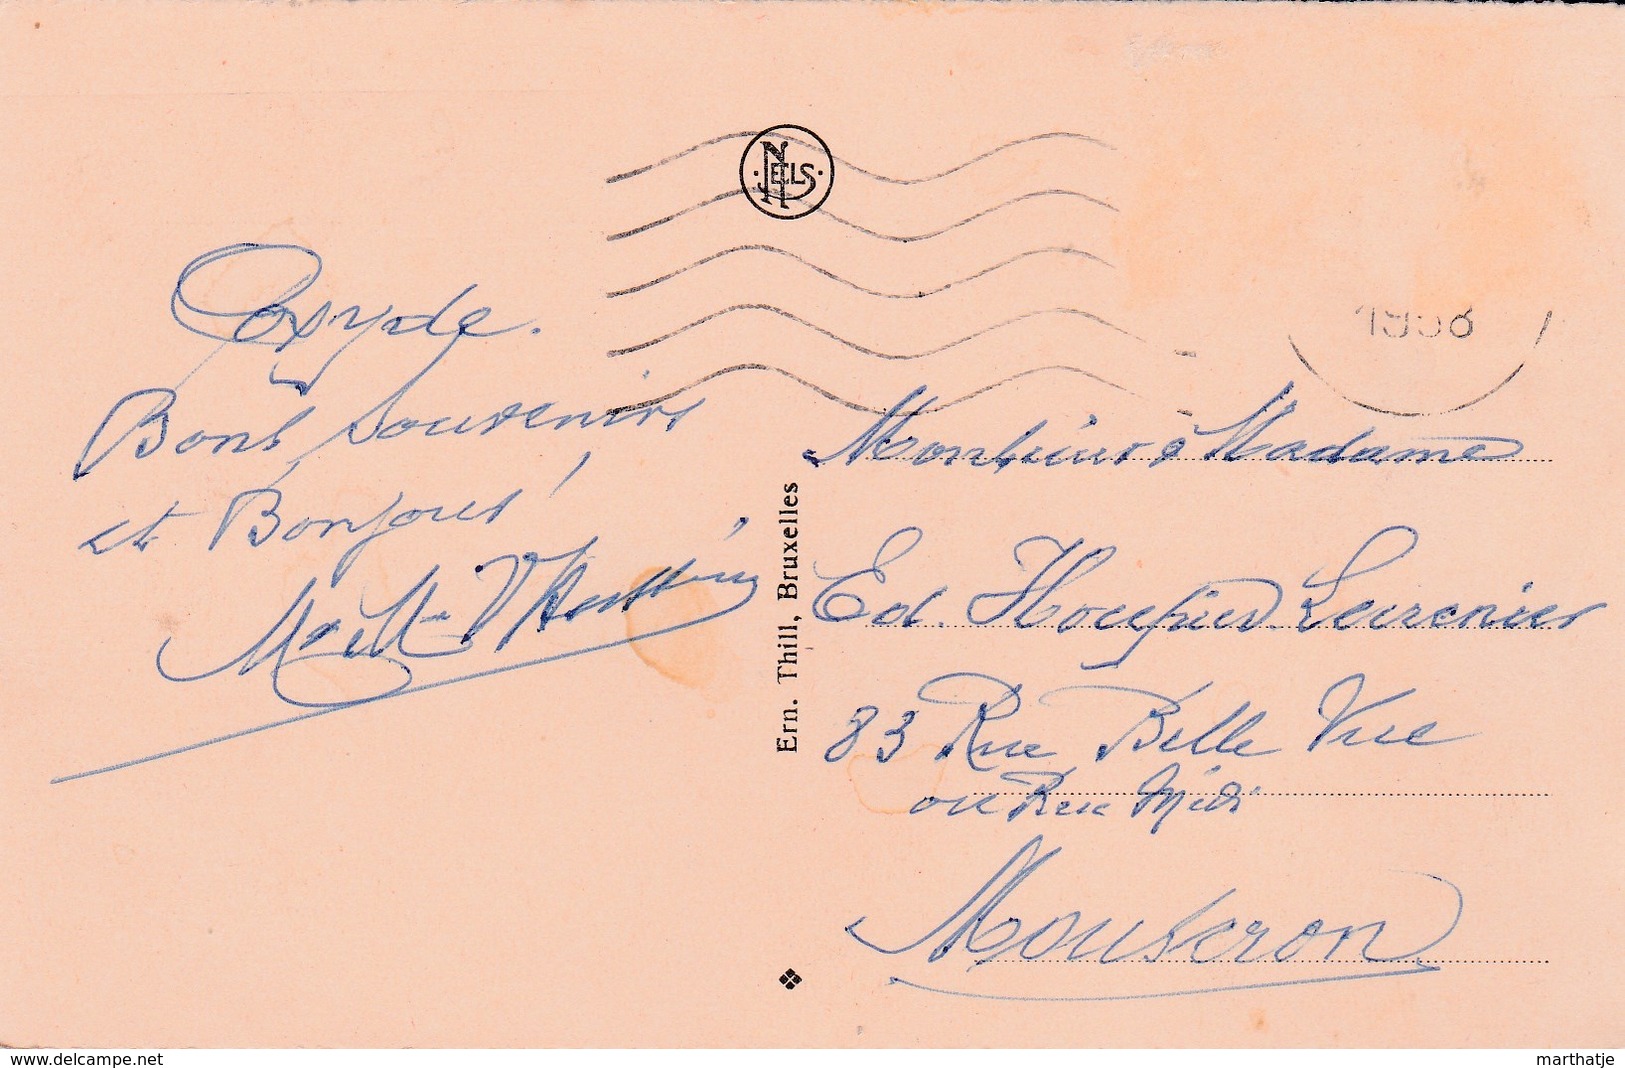 NELS
Coxyde.
Bons souvenirs
et Bonjour!
Mr & Mme
Ern. Thill, Bruxelles
1958
Monsieur & Madame
Ed.
83 Rue Belle Vue
ou Rue Midi
Mouscron
www.delcampe.net
marthatje